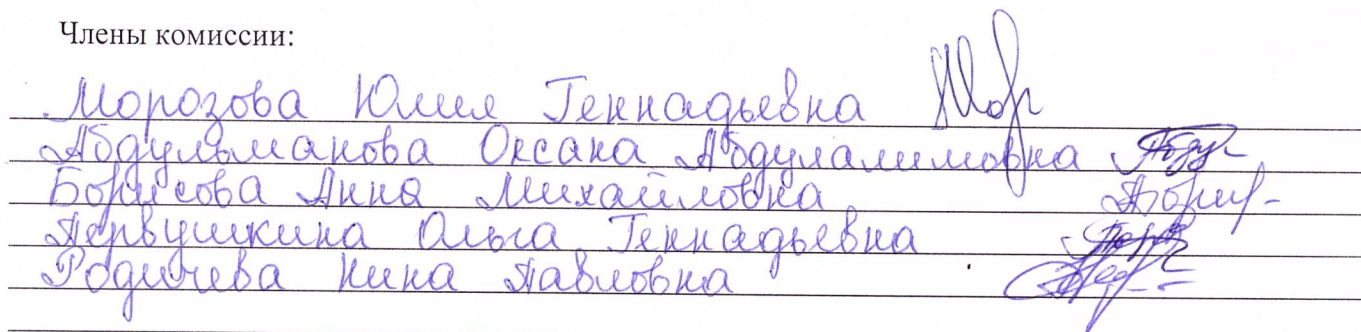 Члены комиссии:
Морозова Юлия Геннадьевна
Абдульманова Оксана Абдулалимовна
Борисова Анна Михайловна
Первушкина Ольга Геннадьевна
Родичева Нина Павловна